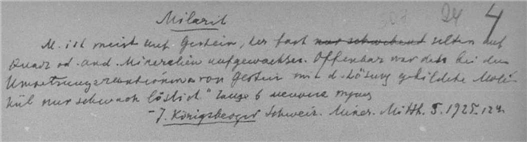 24 4
Milarit
M. ist meist auf Gestein, der fast nur schwebend selten auf
Quarz od. and. Mineralien aufgewachsen. Offenbar war das bei den
Umsetzungsreaktionen von Gestein mit d. Lösung gebildete Mole-
kül nur schwach löslich."
- J. Königsberger Schweiz. Miner. Mitth. 5. 1925. 124.